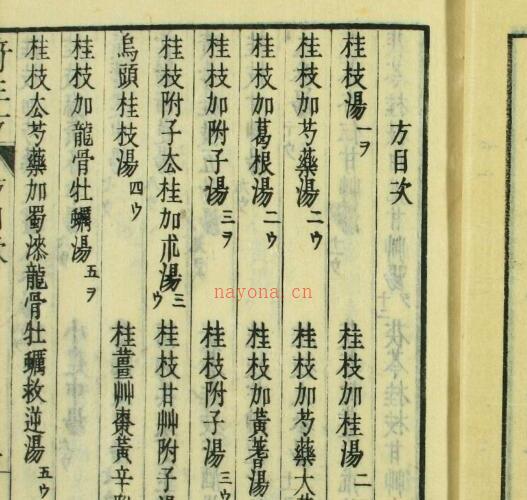 方目次
桂枝湯 一ヲ 桂枝加桂湯 二
桂枝加芍藥湯 二ウ 桂枝加芍藥大
桂枝加葛根湯 二ウ 桂枝加黃蓍湯
桂枝加附子湯 三ヲ 桂枝附子湯 三ウ
桂枝附子去桂加朮湯 三ウ 桂枝甘艸附子湯
烏頭桂枝湯 四ウ 桂薑艸棗黃辛附
桂枝加龍骨牡蠣湯 五ヲ
桂枝去芍藥加蜀漆龍骨牡蠣救逆湯 五ウ
nayona.cn